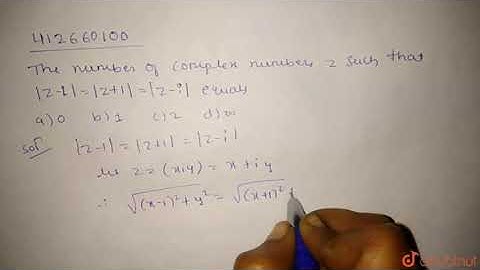 412660100
The number of complex numbers z such that
|z-1| = |z+1| = |z-i| equals
a) 0 b) 1 c) 2 d) ∞
Sol |z-1| = |z+1| = |z-i|
let z = (x,y) = x + iy
∴ √(x-1)² + y² = √(x+1)² +
doubtnut